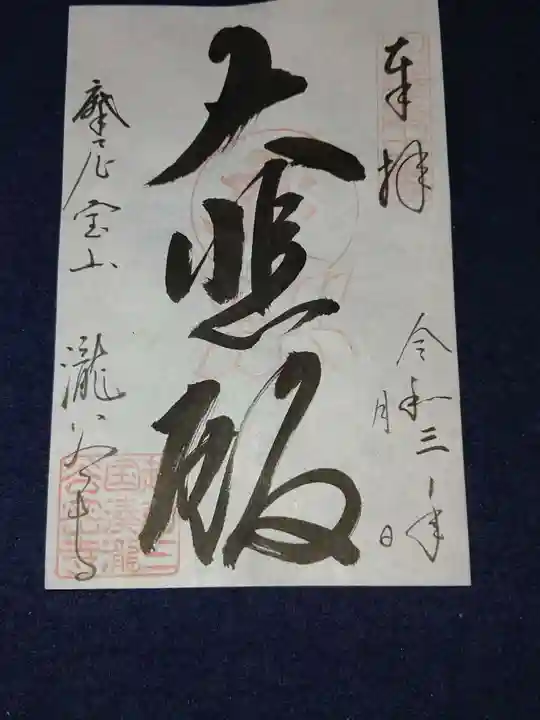 奉拝
令和三年
月 日
大悲殿
摩尼宝山 瀧谷寺